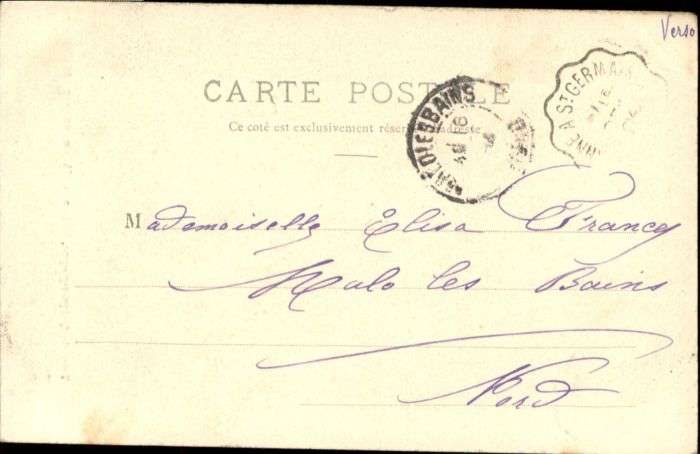 Verso
CARTE POSTALE
Ce coté est exclusivement réservé adresse
MALO LES BAINS
A ST GERMAIN
Mademoiselle Elisa Francq
Malo les Bains
Nord